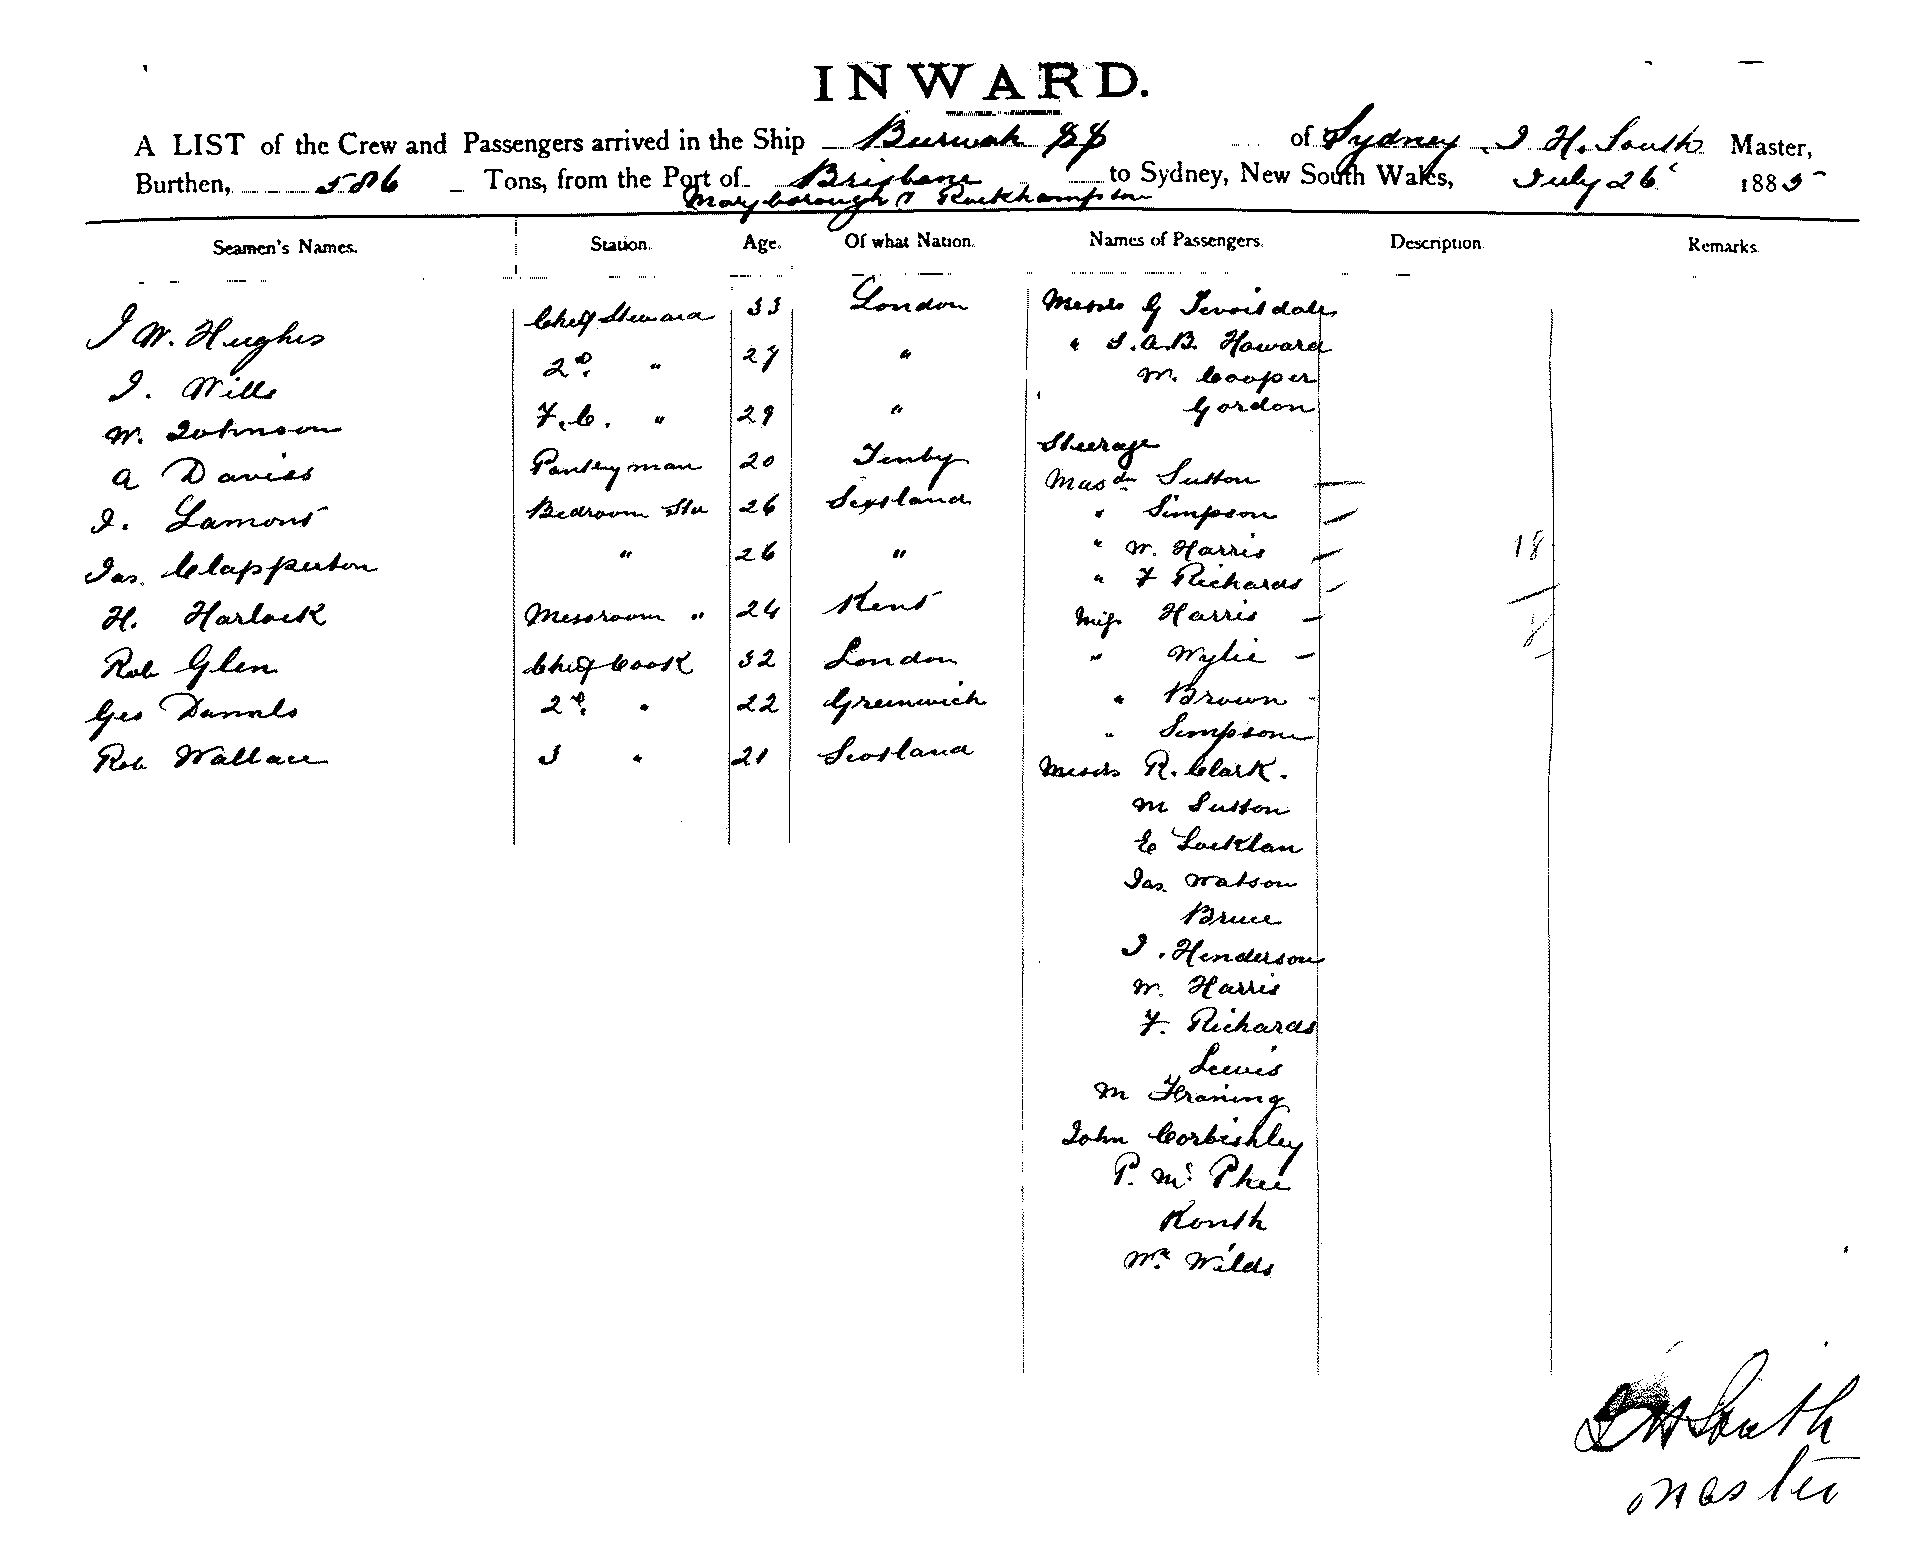 INWARD.
A LIST of the Crew and Passengers arrived in the Ship Burwah SS of Sydney, J H. South Master,
Burthen, 586 Tons, from the Port of Brisbane to Sydney, New South Wales, July 26 1885
Maryborough & Rockhampton
Seamen's Names. Station. Age. Of what Nation. Names of Passengers. Description Remarks.
J W. Hughes Chief Steward 33 London Messrs G Tevoitdale
J. Wills 2d. " 27 " " J.A.B. Howard
W. Cooper
W. Johnson F.C. " 29 " Gordon
Steerage
A Davies Pantryman 20 Tenby Masdr Sutton
J. Lamont Bedroom Stu 26 Scotland " Simpson
Jas. Clapperton " 26 " " W. Harris 18
" F Richards
H. Harlock Messroom " 24 Kent Miss Harris
Rob Glen Chief Cook 32 London " Wylie
Geo Daniels 2d. " 22 Greenwich " Brown
" Simpson
Rob Wallace 3 " 21 Scotland Messrs R. Clark.
M Sutton
E Locklan
Jas. Watson
Bruce
J. Henderson
W. Harris
F. Richards
Lewis
M
John Corbishley
P. Mc Phee
Wm. Wilds
J H South
Master